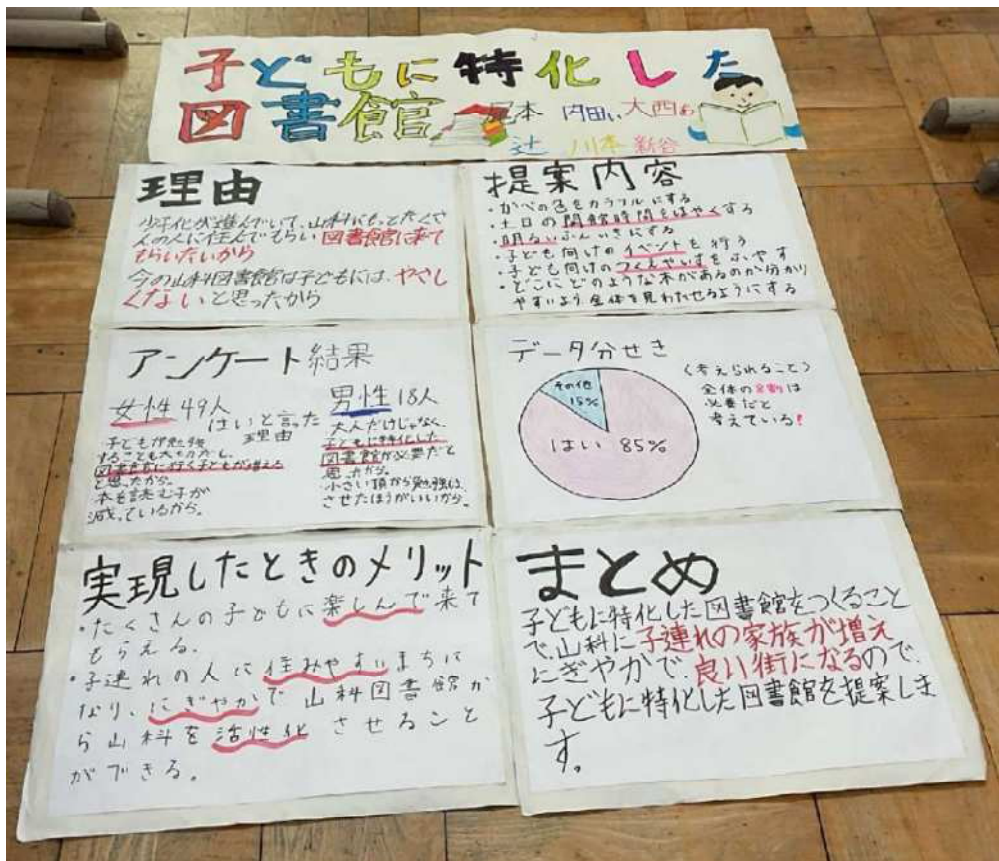 子どもに特化した
図書館
尾本 内田い 大西あ
辻 川本 新谷
理由
少子化が進んでいて、山科にもっとたくさ
んの人に住んでもらい図書館に来て
もらいたいから
今の山科図書館は子どもには、やさし
くないと思ったから
提案内容
・かべの色をカラフルにする
・土日の開館時間をはやくする
・明るいふんいきにする
・子ども向けのイベントを行う
・子ども向けのつくえやいすをふやす
・どこにどのような本があるのか分かり
やすいよう全体を見わたせるようにする
アンケート結果
女性49人
はいと言った
理由
子どもが勉強
することも大切だし、
図書館に行く子どもが増える
と思ったから。
本を読む子が
減っているから。
男性18人
大人だけじゃなく、
子どもに特化した
図書館が必要だと
思ったから。
小さい頃から勉強は
させたほうがいいから。
データ分せき
その他
15%
はい 85%
(考えられること)
全体の8割は
必要だと
考えている!
実現したときのメリット
・たくさんの子どもに楽しんで来て
もらえる。
・子連れの人に住みやすいまちに
なり、にぎやかで山科図書館か
ら山科を活性化させること
ができる。
まとめ
子どもに特化した図書館をつくること
で、山科に子連れの家族が増え
にぎやかで、良い街になるので、
子どもに特化した図書館を提案しま
す。